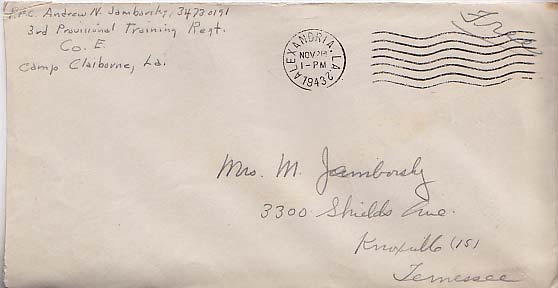 P.F.C. Andrew N. Jamborsky, 34730191
3rd Provisional Training Regt.
Co. E.
Camp Claiborne, La.
ALEXANDRIA, LA.
NOV 28
1-PM
1943
Free
Mrs. M. Jamborsky
3300 Shields Ave.
Knoxville (15)
Tennessee